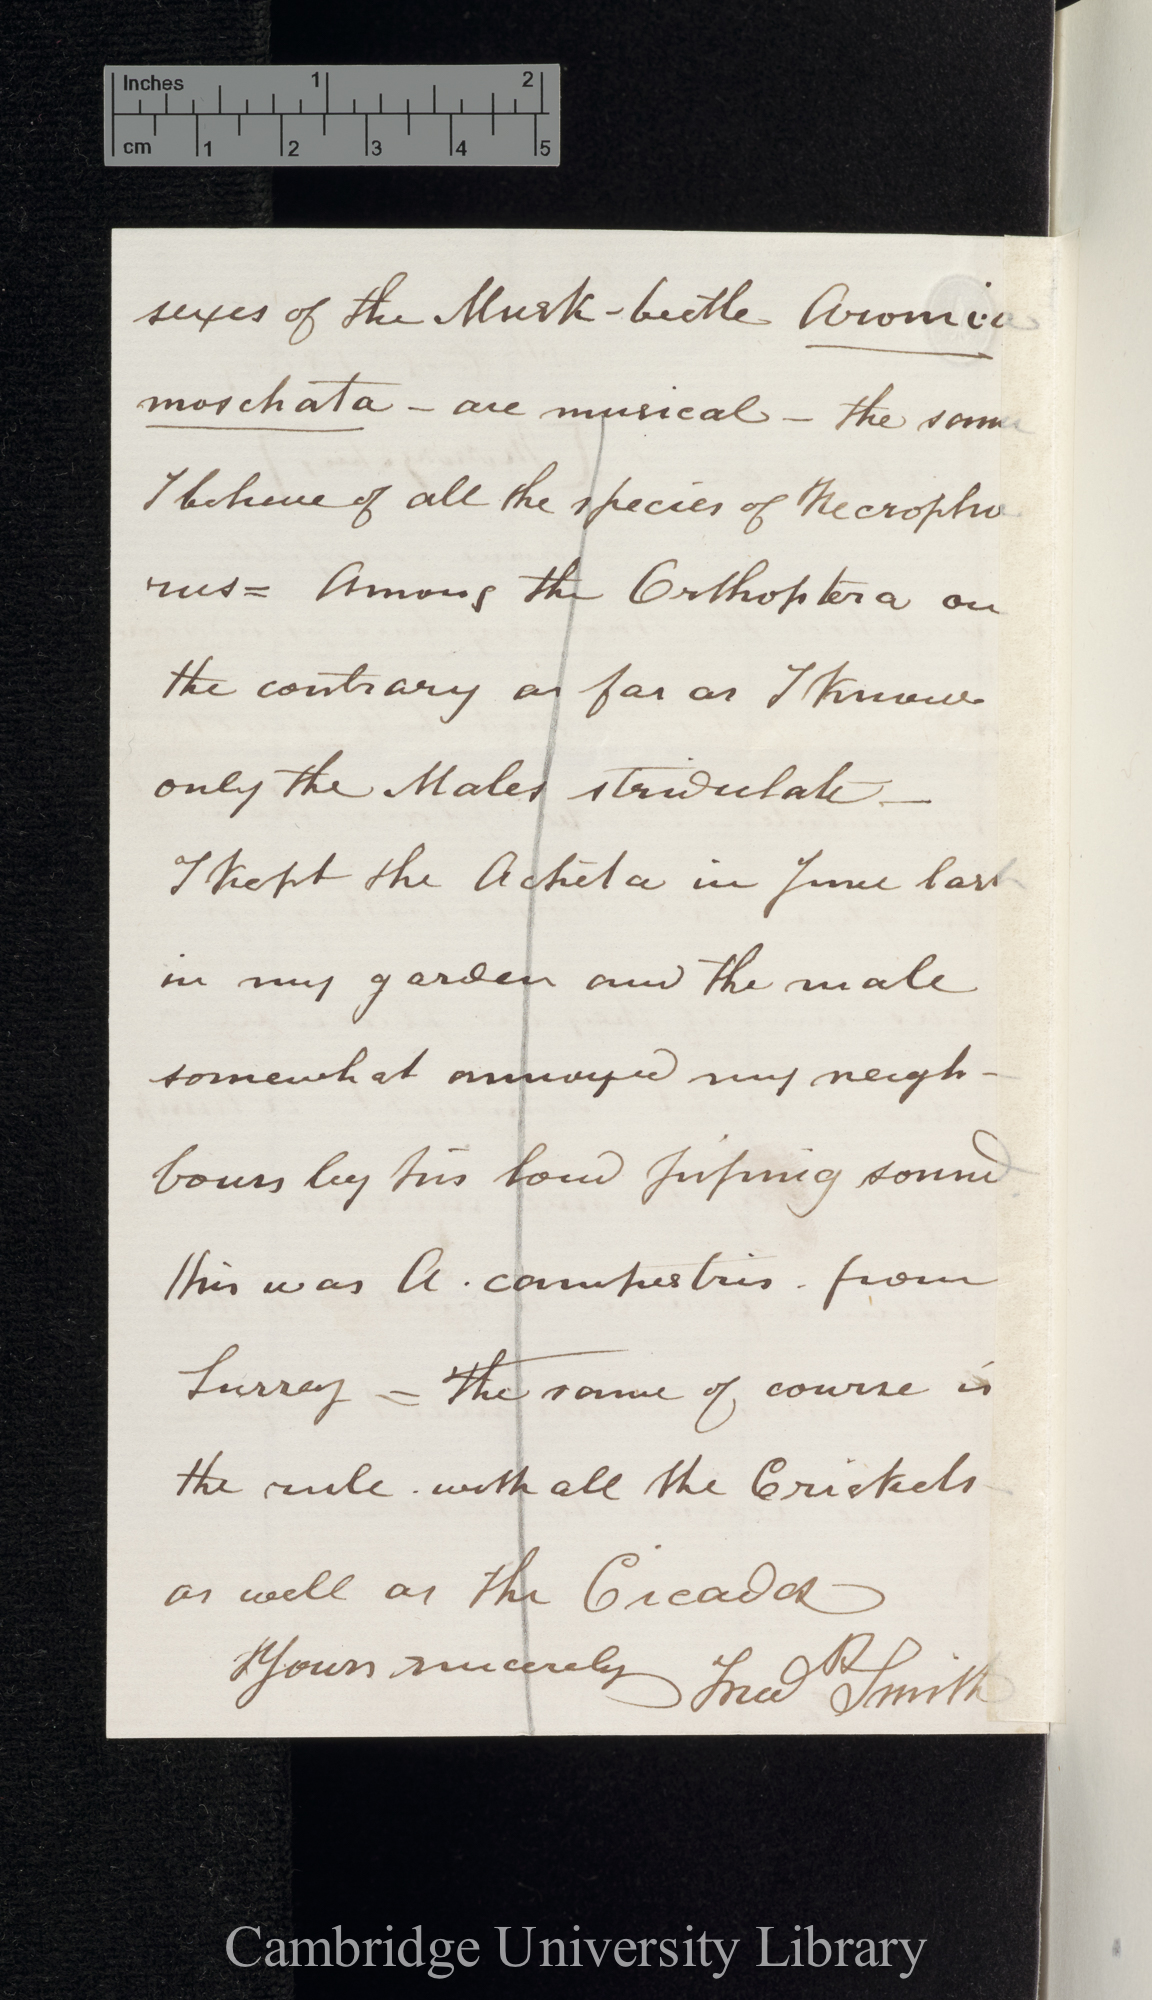 Inches 1 2
cm 1 2 3 4 5
sexes of the Musk-beetle Aromia
moschata - are musical - the same
I believe of all the species of Necropho
rus = Among the Orthoptera on
the contrary as far as I know
only the Males stridulate -
I kept the Acheta in June last
in my garden and the male
somewhat annoyed my neigh-
bours by his loud piping sound
this was A. campestris. from
Surrey = The same of course is
the rule. with all the Crickets
as well as the Cicadas
Yours sincerely Fredk Smith
Cambridge University Library